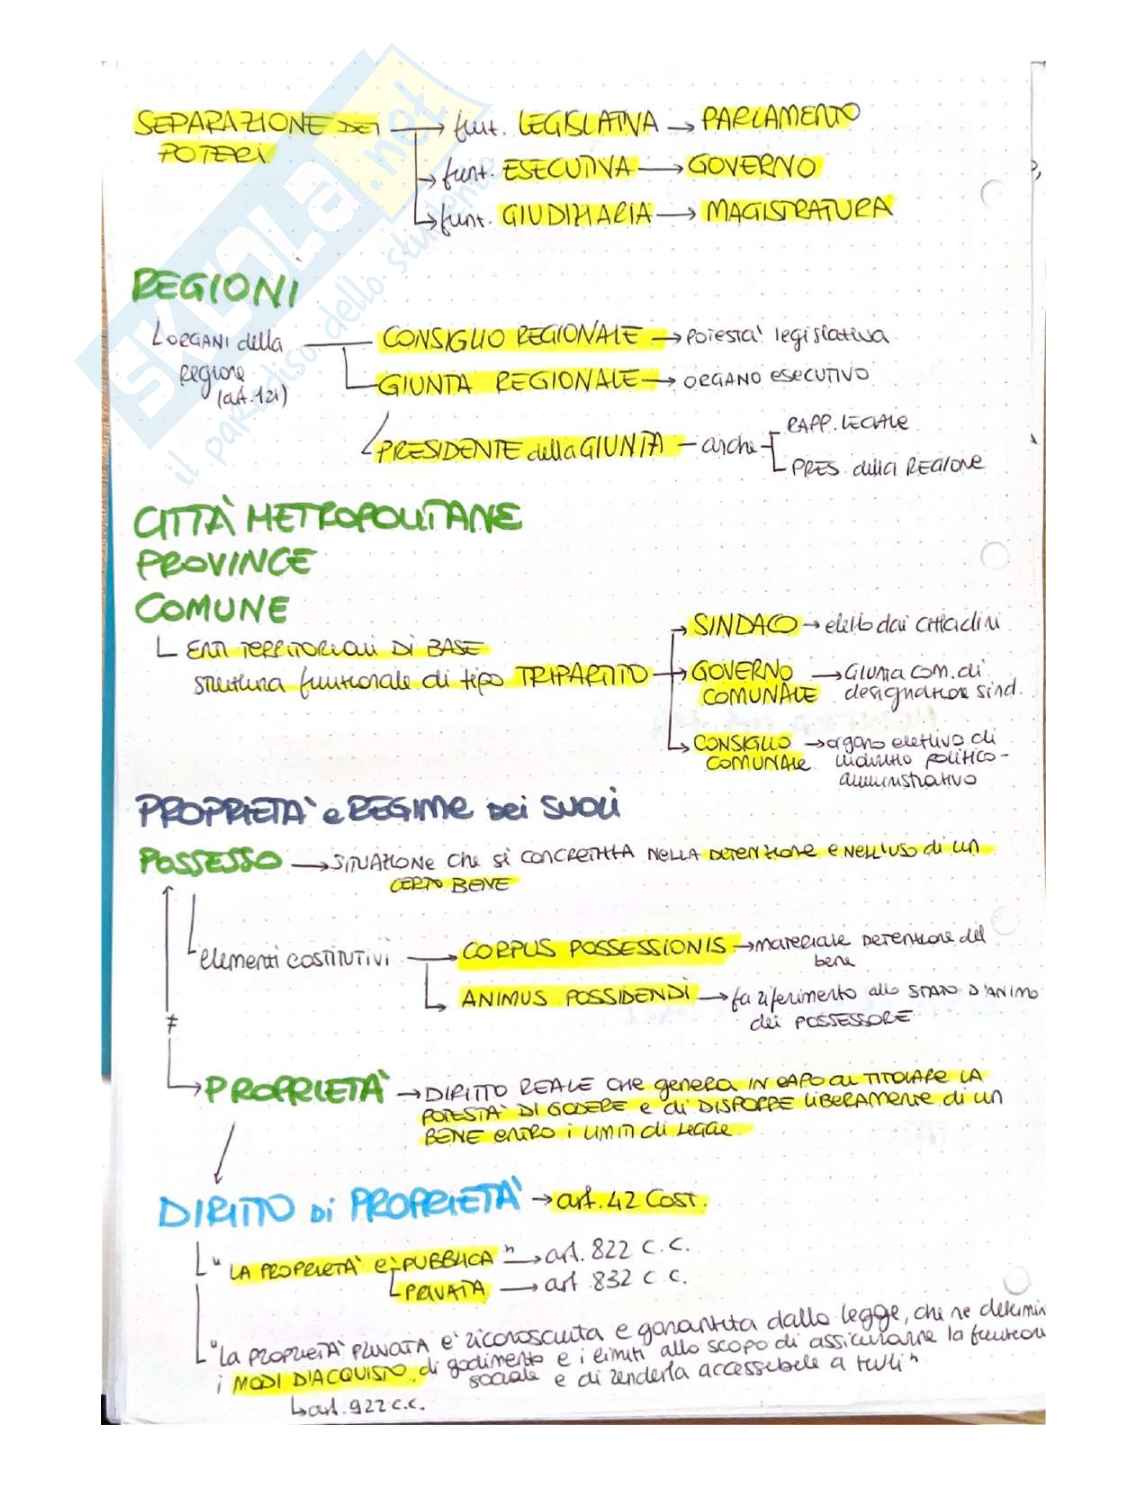 SEPARAZIONE DEI → funz. LEGISLATIVA → PARLAMENTO
POTERI
→ funz. ESECUTIVA → GOVERNO
→ funz. GIUDIZIARIA → MAGISTRATURA
SKUOLA.net
il paradiso dello studente
REGIONI
ORGANI della CONSIGLIO REGIONALE → POTESTA' legislativa
Regione GIUNTA REGIONALE → ORGANO ESECUTIVO
(art. 121)
PRESIDENTE della GIUNTA - anche RAPP. LEGALE
PRES. della REGIONE
CITTÀ METROPOLITANE
PROVINCE
COMUNE
SINDACO → eletto dai cittadini
ENTI TERRITORIALI DI BASE
struttura funzionale di tipo TRIPARTITO → GOVERNO → Giunta com. di
COMUNALE designazione sind.
CONSIGLIO → organo elettivo di
COMUNALE indirizzo politico-
amministrativo
PROPRIETA' e REGIME DEI SUOLI
POSSESSO → SITUAZIONE che si CONCRETIZZA NELLA DETENZIONE e NELL'USO di un
CERTO BENE
elementi COSTITUTIVI CORPUS POSSESSIONIS → materiale DETENZIONE del
bene
ANIMUS POSSIDENDI → fa riferimento allo STATO D'ANIMO
del POSSESSORE
≠
PROPRIETÀ → DIRITTO REALE che genera IN CAPO al TITOLARE LA
POTESTA' DI GODERE e di DISPORRE LIBERAMENTE di un
BENE entro i LIMITI di legge
DIRITTO di PROPRIETA' → art. 42 COST.
"LA PROPRIETA' E' PUBBLICA" → art. 822 C.C.
PRIVATA → art 832 C C.
"La PROPRIETA' PRIVATA e' riconosciuta e garantita dalla legge, che ne determin
i MODI D'ACQUISTO, di godimento e i limiti allo scopo di assicurarne la funzion
sociale e di renderla accessibile a tutti"
art. 922 C.C.